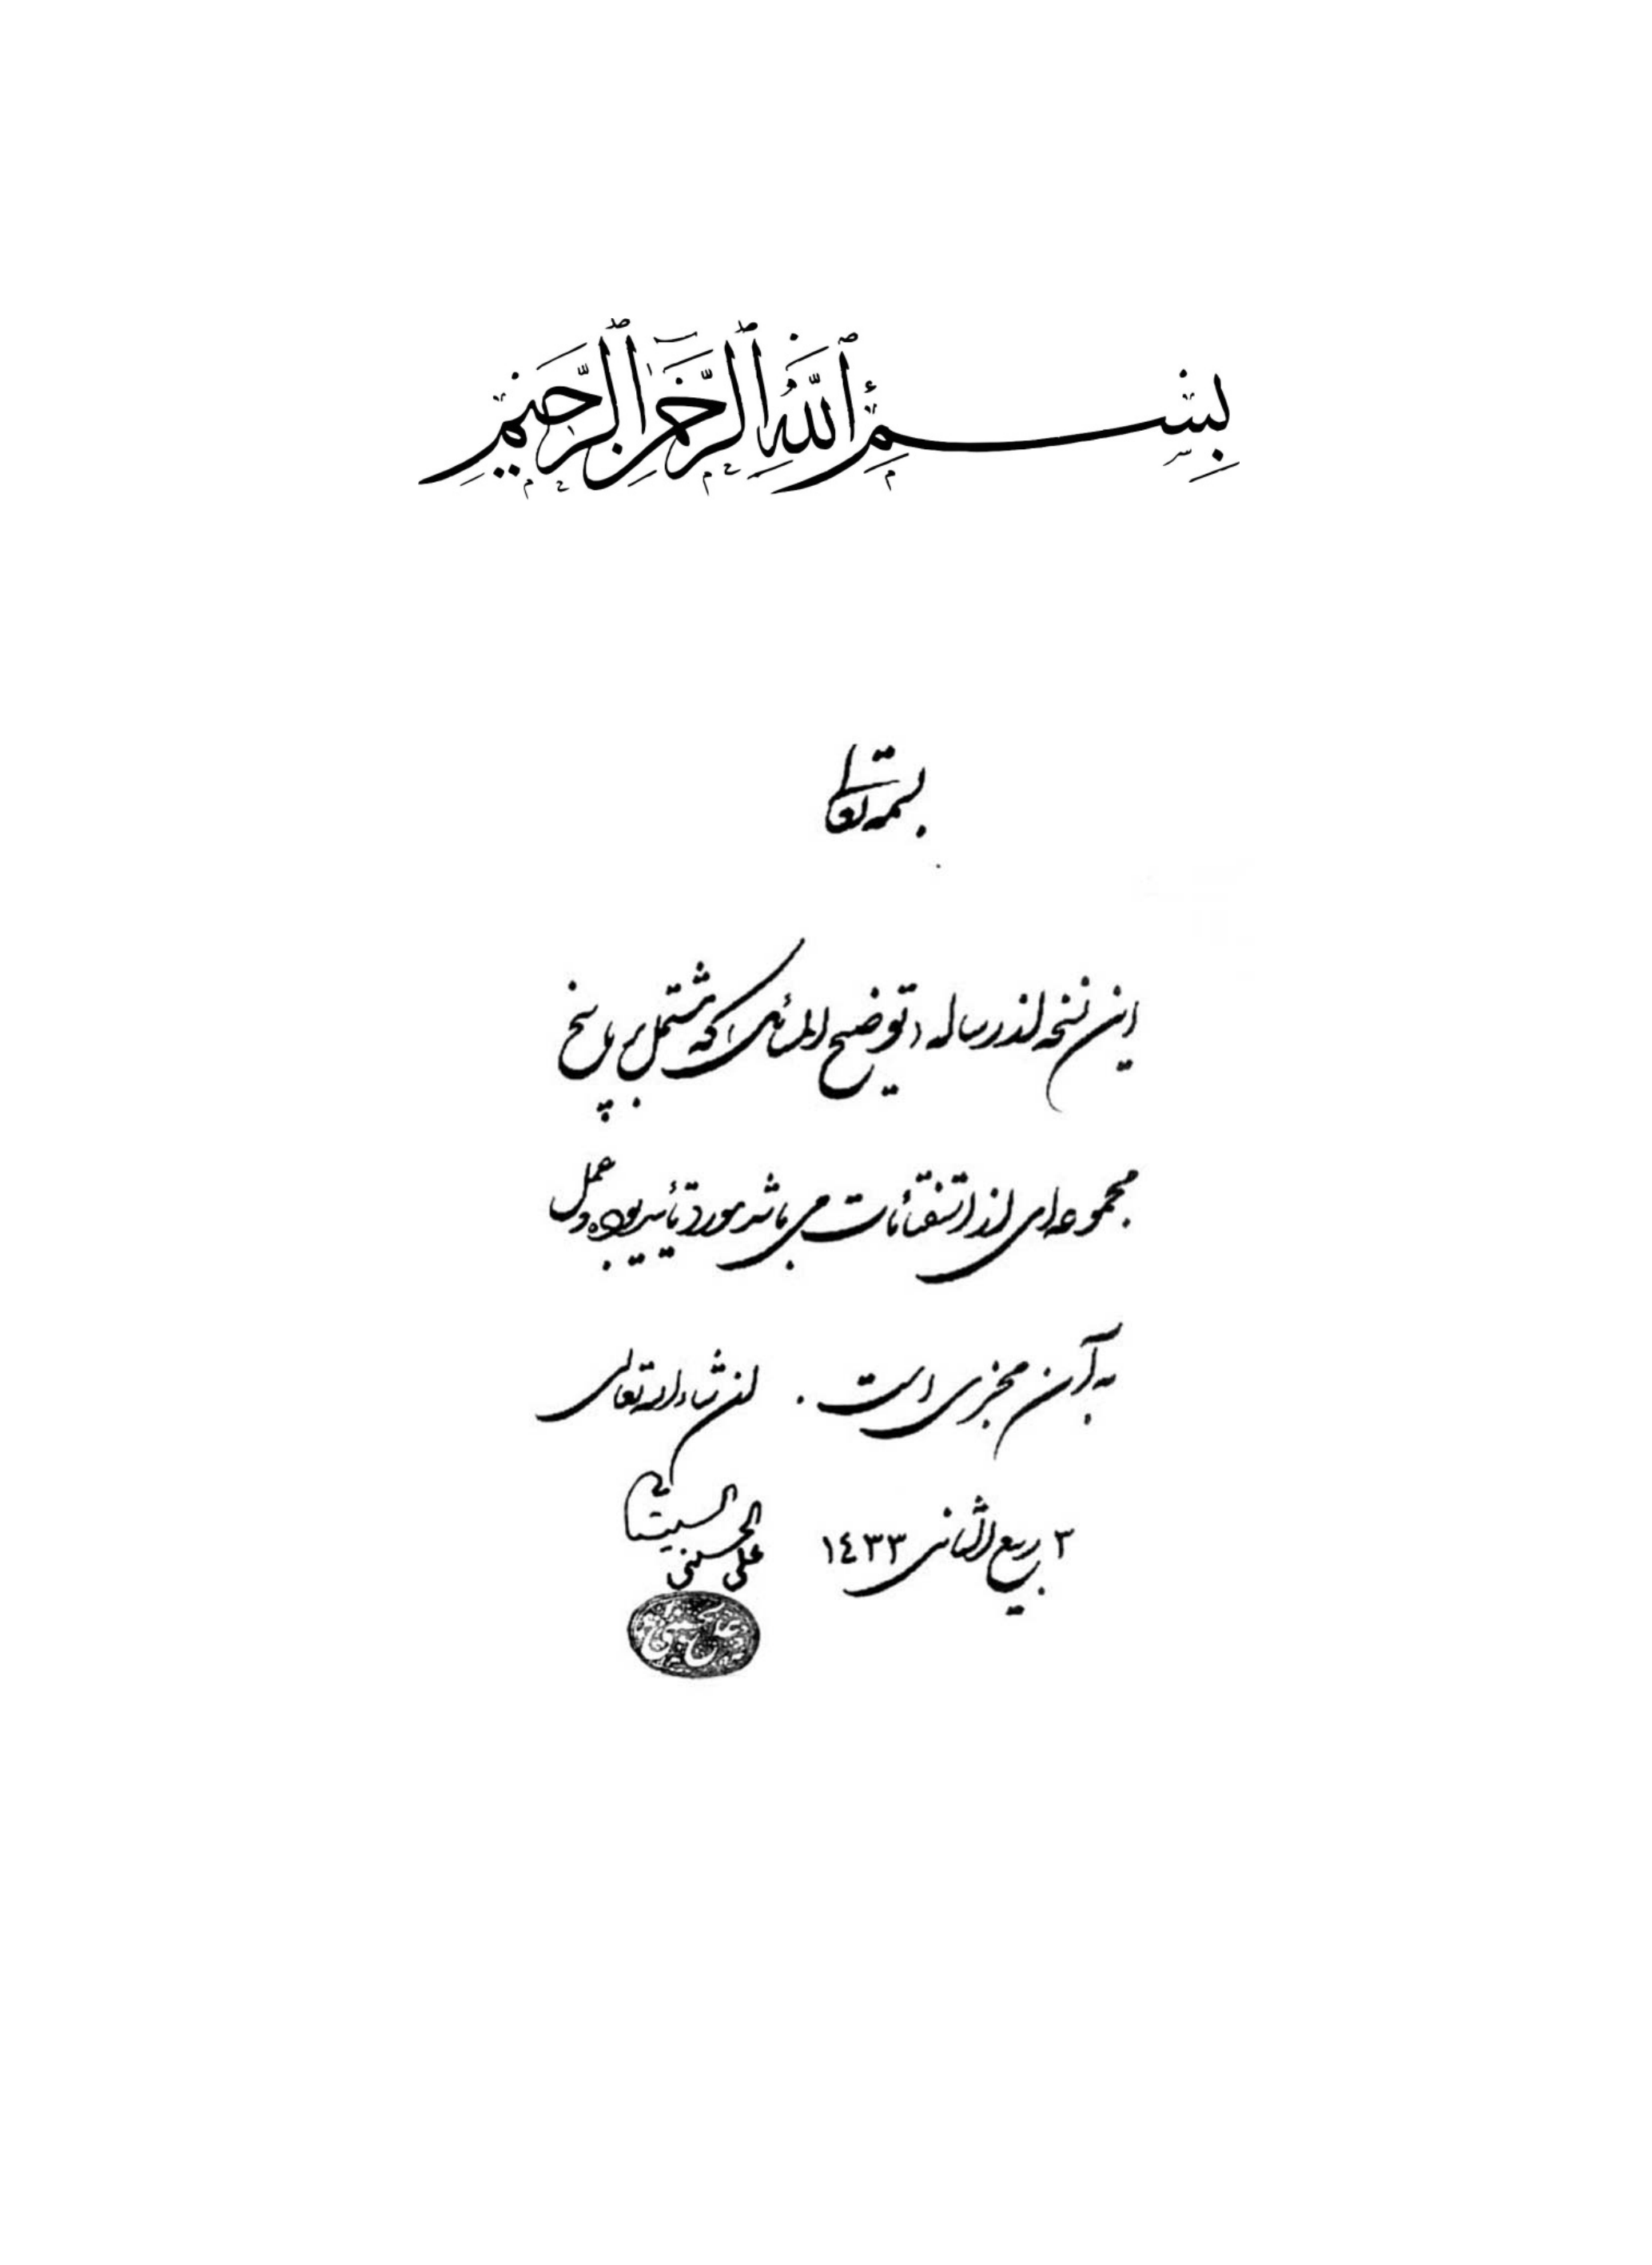 بِسْمِ ٱللَّهِ ٱلرَّحْمَٰنِ ٱلرَّحِيمِ
بسمه تعالی
این نسخه از رساله «توضیح المسائل» که مشتمل بر پاسخ
مجموعه‌ای از استفتائات می باشد مورد تأیید بوده و عمل
به آن مجزی است . ان شاء الله تعالی
٣ ربیع الثانی ١٤٣٣
علی الحسینی السیستانی